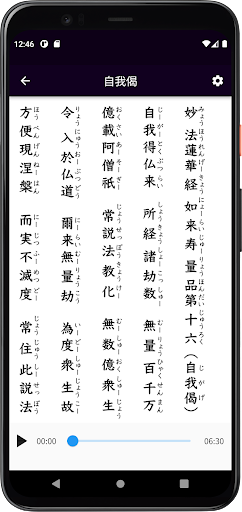 12:46
自我偈
妙法蓮華経 如来寿量品第十六(自我偈)
みょうほうれんげーきょう にょーらいじゅーりょうほんだいじゅうろく じがげ
自我得仏来 所経諸劫数 無量百千万
じーがーとくぶつらい しょーきょうしょーこうしゅ むーりょうひゃくせんまん
億載阿僧祇 常説法教化 無数億衆生
おくさいあーそーぎー じょうせっぽうきょうけー むーしゅーおくしゅーじょう
令入於仏道 爾来無量劫 為度衆生故
りょうにゅうおーぶつどう にーらいむーりょうこう いーどーしゅーじょうこー
方便現涅槃 而実不滅度 常住此説法
ほうべんげんねーはん にーじつふーめつどー じょうじゅうしーせっぽう
00:00
06:30